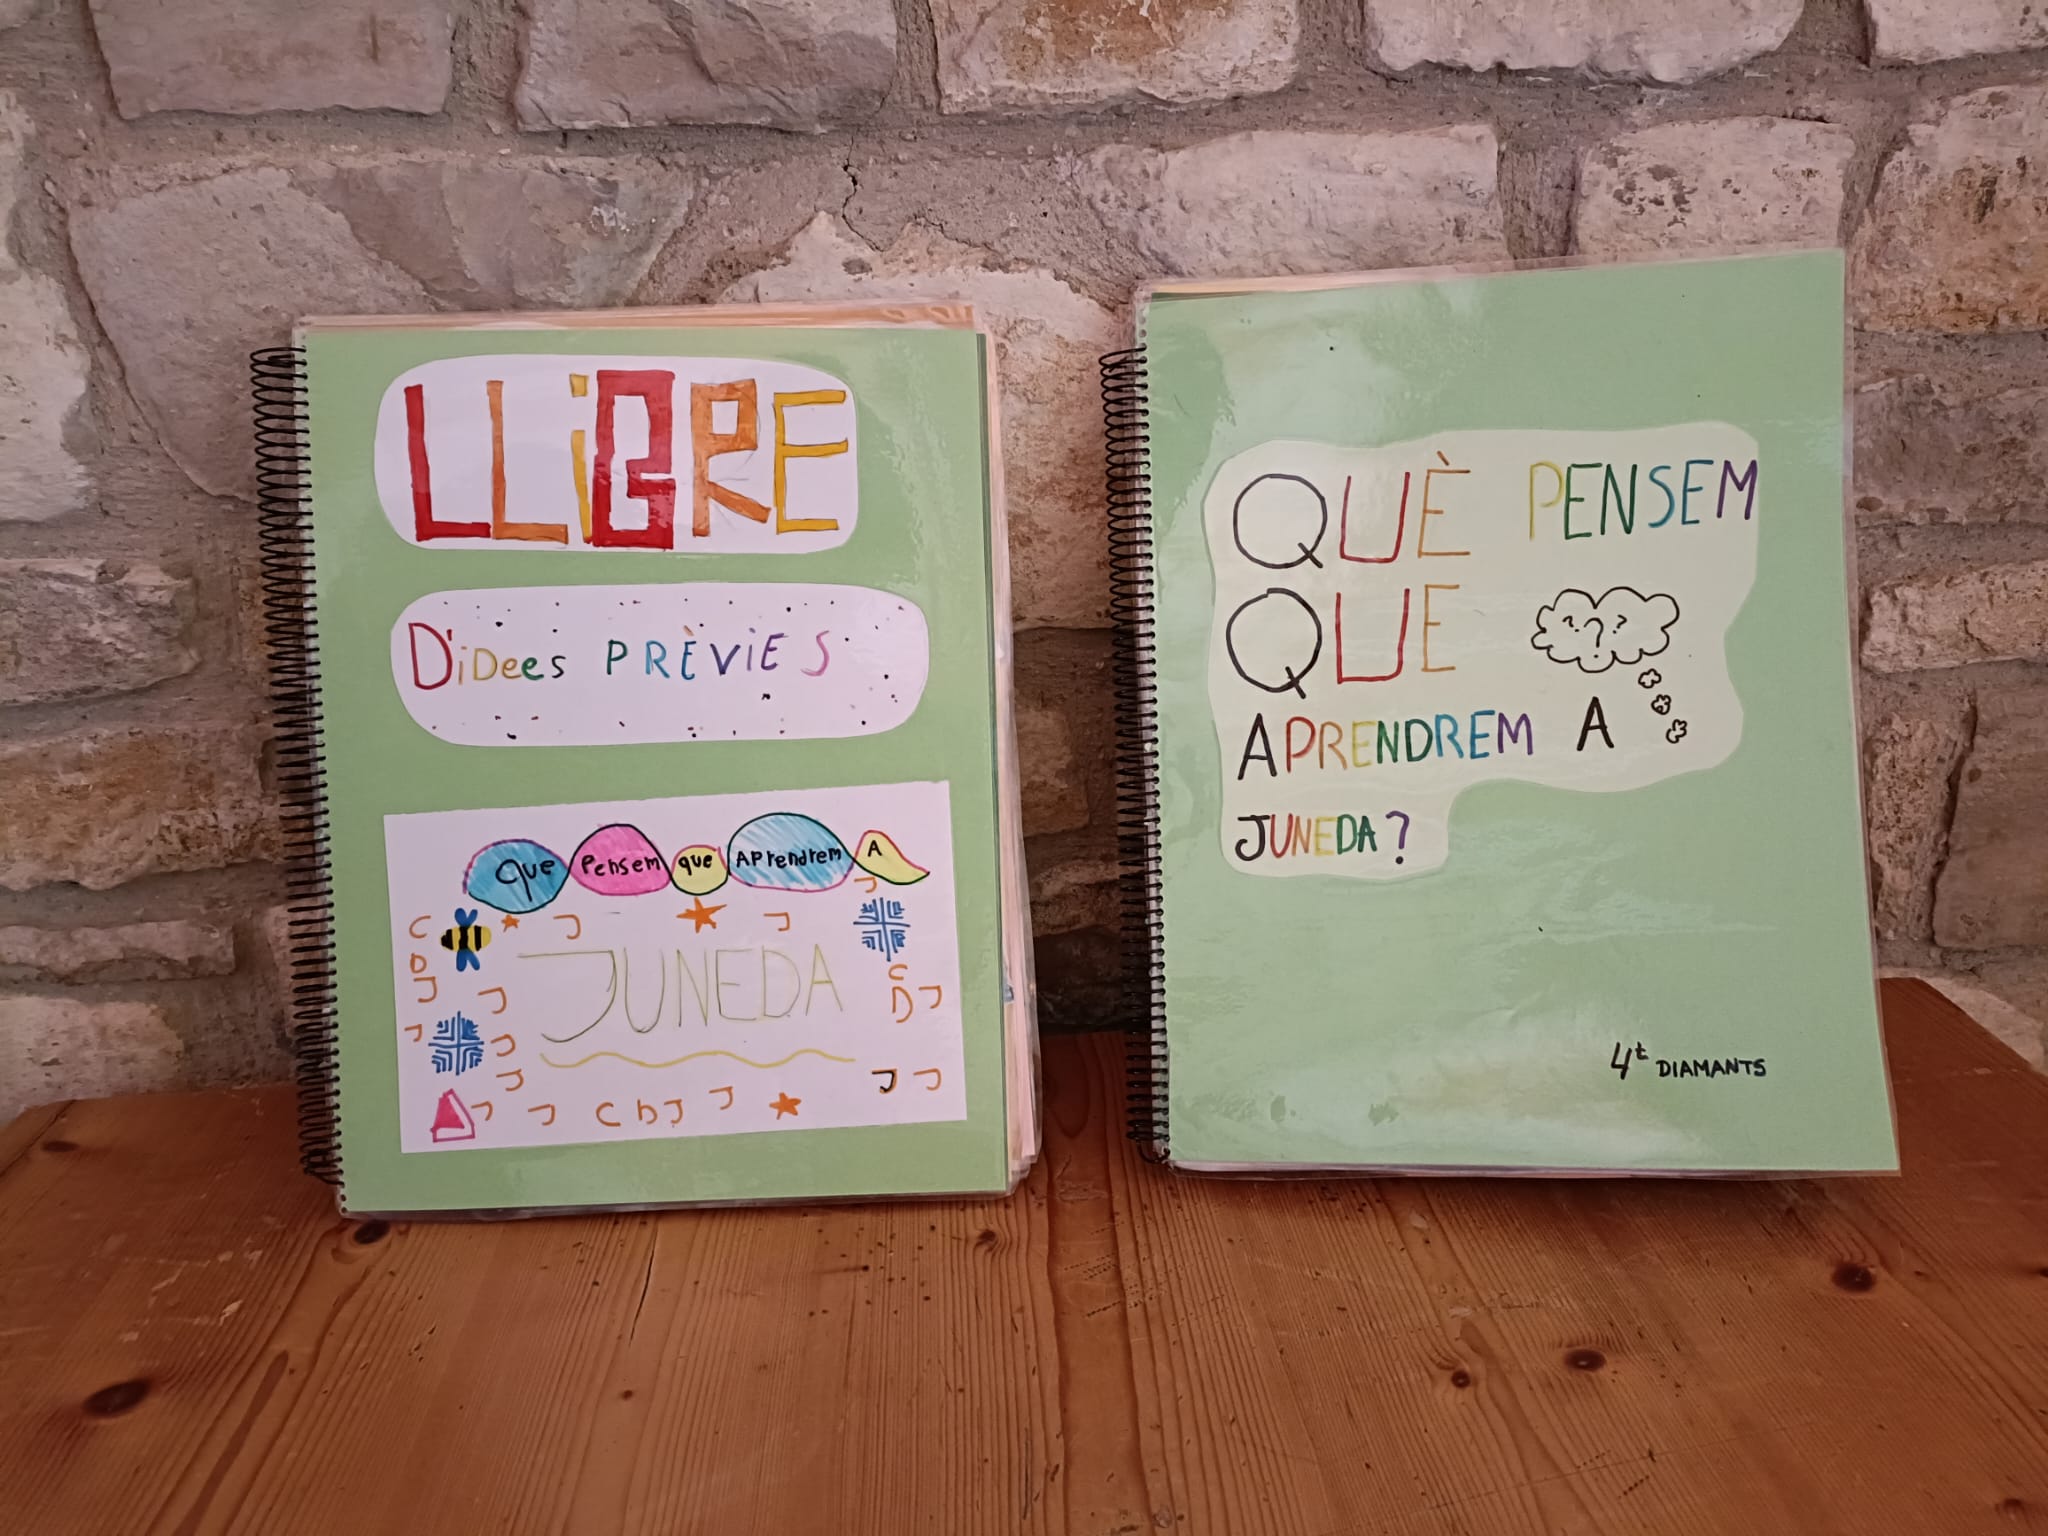 LLiBRE
D'iDees PRÈViES
Que Pensem que APrendrem A
C J J
D C
J JUNEDA D J
J J
J
J J J
J J C D J J
QUÈ PENSEM
QUE ? ? ?
APRENDREM A
JUNEDA?
4t DIAMANTS